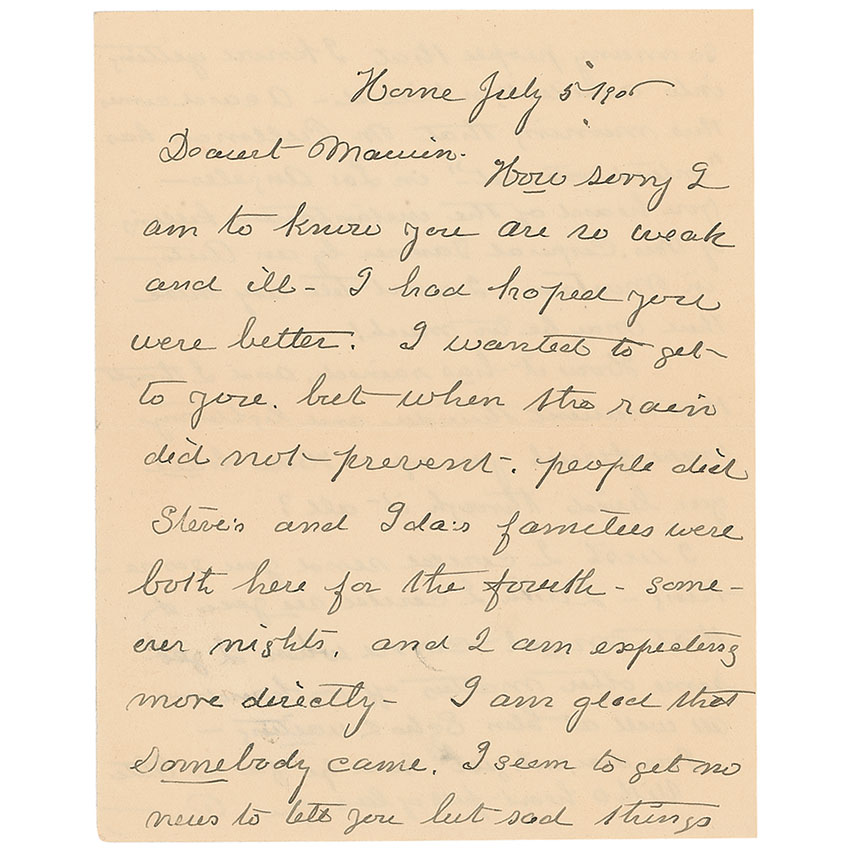 Home July 5" 190
Dearest
How sorry I
am to know you are so weak
and ill - I had hoped you
were better. I wanted to get
to you. but when the rain
did not prevent. people did
Steve's and Ida's families were
both here for the fourth - some -
over nights, and I am expecting
more directly - I am glad that
Somebody came. I seem to get no
news to tell you but sad things